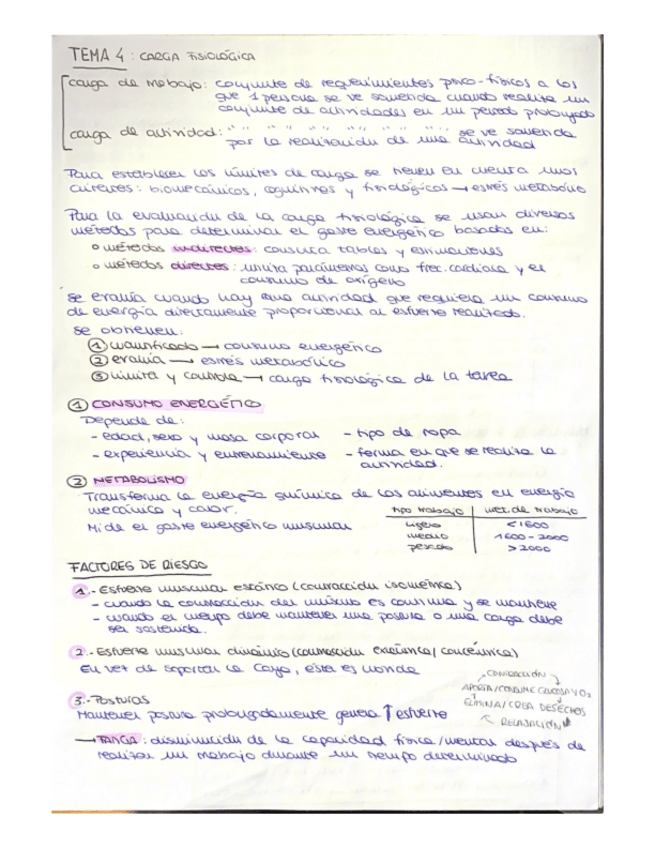 TEMA 4 : CARGA FISIOLÓGICA
carga de trabajo: conjunto de requerimientos psico-físicos a los
que 1 persona se ve sometida cuando realiza un
conjunto de actividades en un periodo prolongado
carga de actividad: " " " " " " " " se ve sometida
por la realización de una actividad
Para establecer los límites de carga se tienen en cuenta unos
criterios: biomecánicos, cognitivos y fisiológicos → estrés metabólico
Para la evaluación de la carga fisiológica se usan diversos
métodos para determinar el gasto energético basados en:
o métodos indirectos: consulta tablas y estimaciones
o métodos directos: limita parámetros como frec. cardiaca y el
consumo de oxígeno
Se evalúa cuando hay una actividad que requiera un consumo
de energía directamente proporcional al esfuerzo realizado.
Se obtienen:
① cuantificado → consumo energético
② evalúa → estrés metabólico
③ limita y controla → carga fisiológica de la tarea
① CONSUMO ENERGÉTICO
Depende de:
- edad, sexo y masa corporal - tipo de ropa
- experiencia y entrenamiento - forma en que se realiza la
actividad.
② METABOLISMO
Transforma la energía química de los alimentos en energía
mecánica y calor.
Mide el gasto energético muscular
tipo trabajo met. de trabajo
ligero <1600
medio 1600 - 2000
pesado >2000
FACTORES DE RIESGO
1.- Esfuerzo muscular estático (contracción isométrica)
- cuando la contracción del mismo es continua y se mantiene
- cuando el cuerpo debe mantener una postura o una carga debe
ser sostenida.
2.- Esfuerzo muscular dinámico (contracción excéntrica/ concéntrica)
En vez de soportar la carga, esta es movida
3.- Posturas
Mantener postura prolongadamente genera ↑ esfuerzo
CONTRACCIÓN
APORTA/CONSUME GLUCOSA Y O₂
ELIMINA/CREA DESECHOS
RELAJACIÓN
→ FATIGA : disminución de la capacidad física/mental después de
realizar un trabajo durante un tiempo determinado